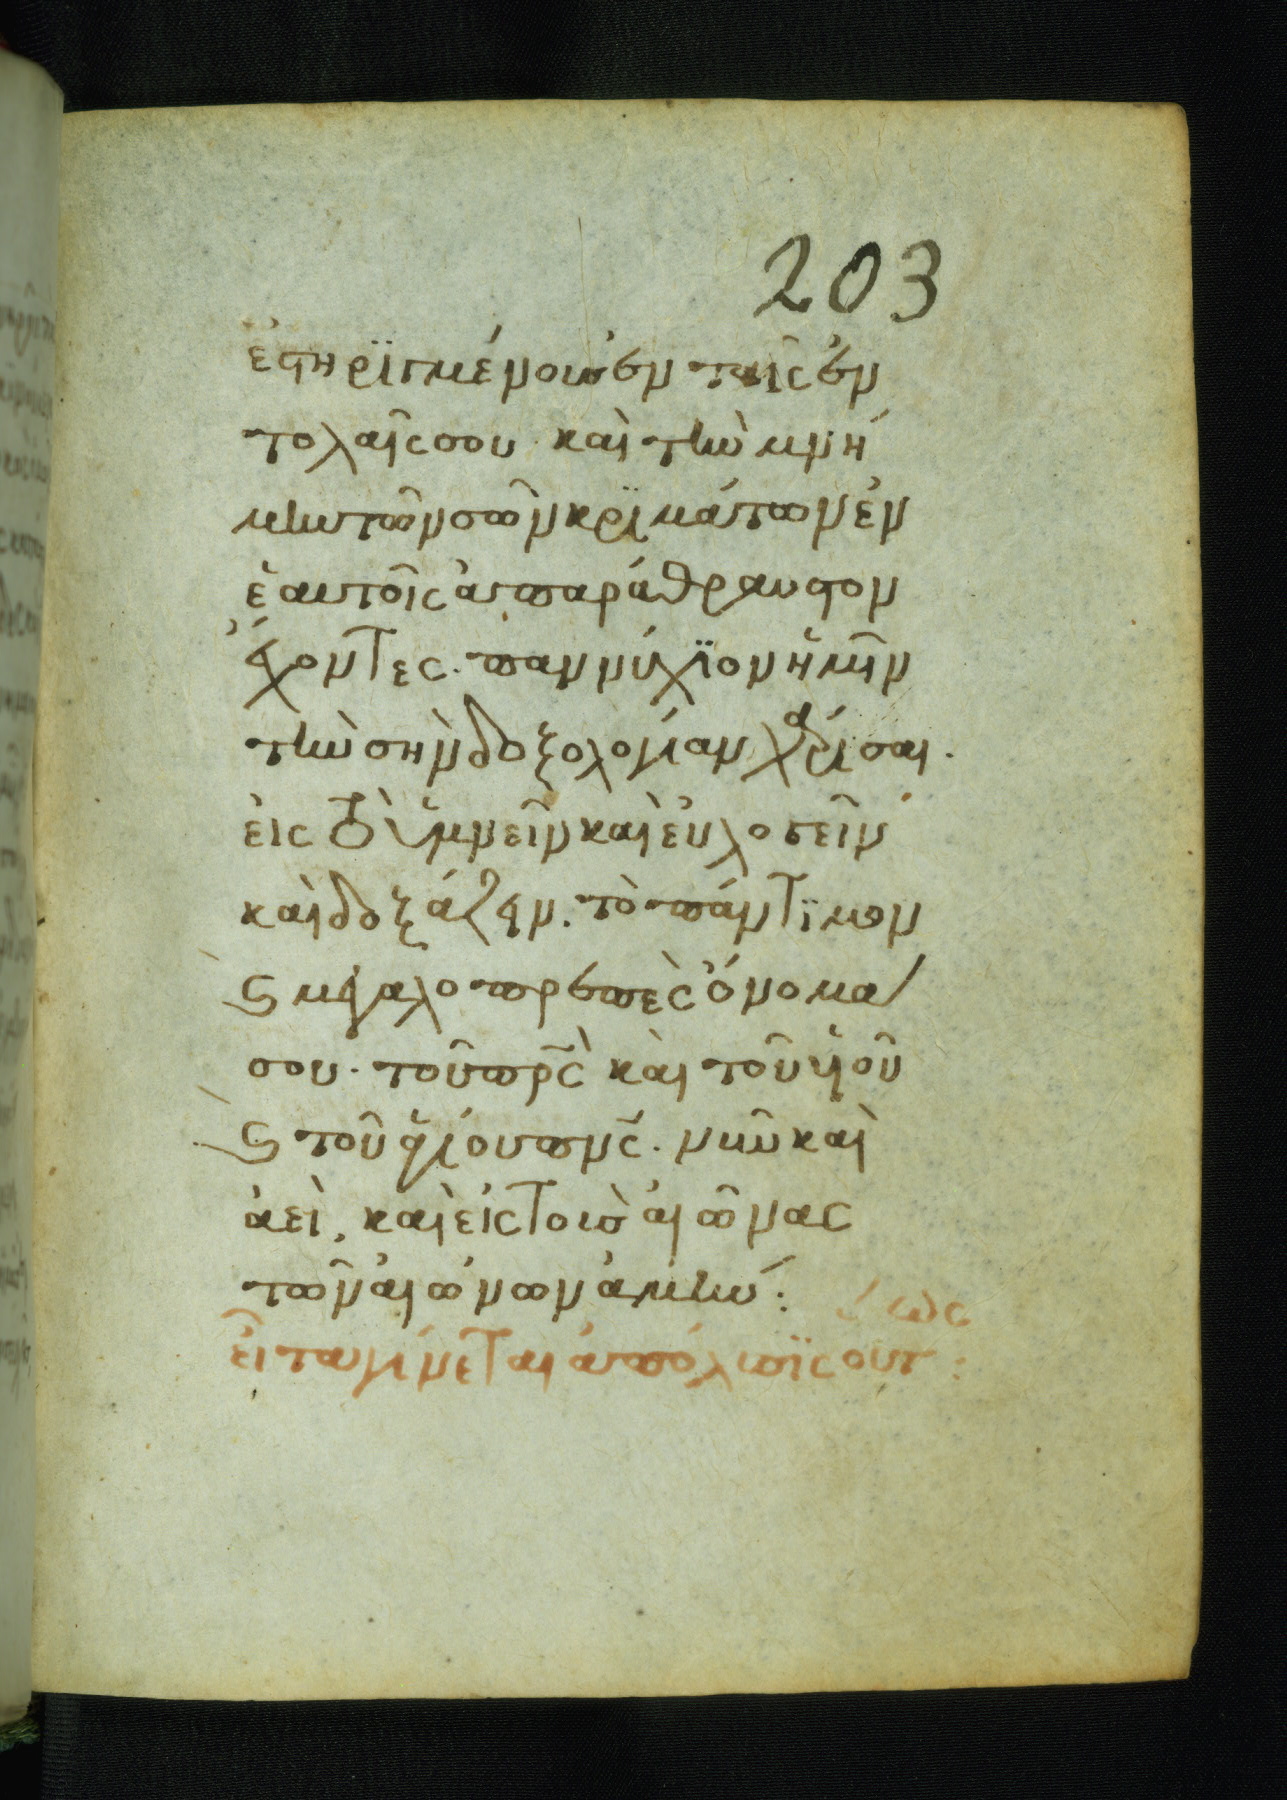 203
ἐστηριγμένους ἐν ταῖς ἐν
τολαῖς σου. καὶ τὴν μνή
μην τῶν σῶν κριμάτων ἐν
ἑαυτοῖς ἀπαράθραυστον
ἔχοντες. παννύχϊον ἡμῖν
τὴν σὴν δοξολογίαν χάρισαι.
εἰς τὸ ὑμνεῖν καὶ εὐλογεῖν
καὶ δοξάζειν. τὸ πάντϊμον
ϛ μεγαλοπρεπὲς ὄνομα
σου. τοῦ πρς καὶ τοῦ ὑιοῦ
ϛ τοῦ ἁγίου πνς. νῦν καὶ
ἀεὶ, καὶ εἰς τοὺς αἰῶνας
τῶν αἰώνων ἀμήν:
εἶτα γίνεται ἀπόλυσϊς οὕτως: